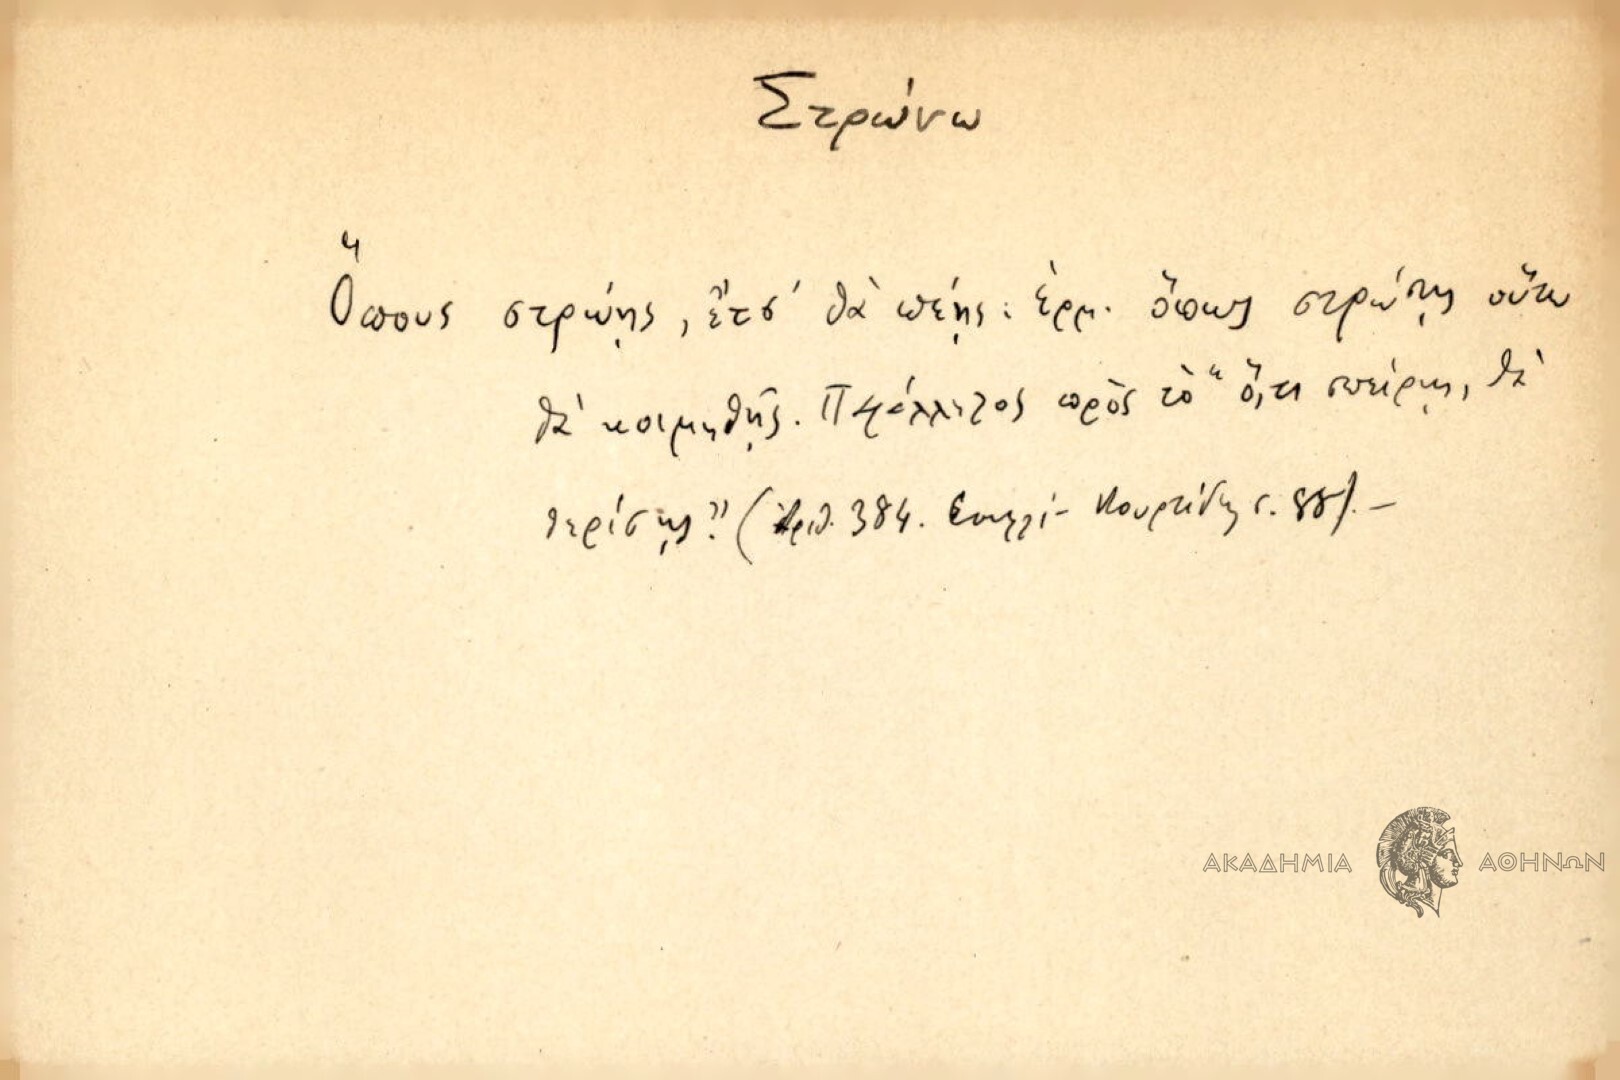 Στρώνω
Ὅπους στρώῃς, ἔτσ' θὰ πέῃς: ἑρμ. ὅπως στρώσῃς οὕτω
θὰ κοιμηθῇς. Παράλληλος πρὸς τὸ " ὅ,τι σπείρῃς, θὰ
θερίσῃς." (Ἀριθ. 384. Κουρτίδης σ. 88). -
ΑΚΑΔΗΜΙΑ ΑΘΗΝΩΝ